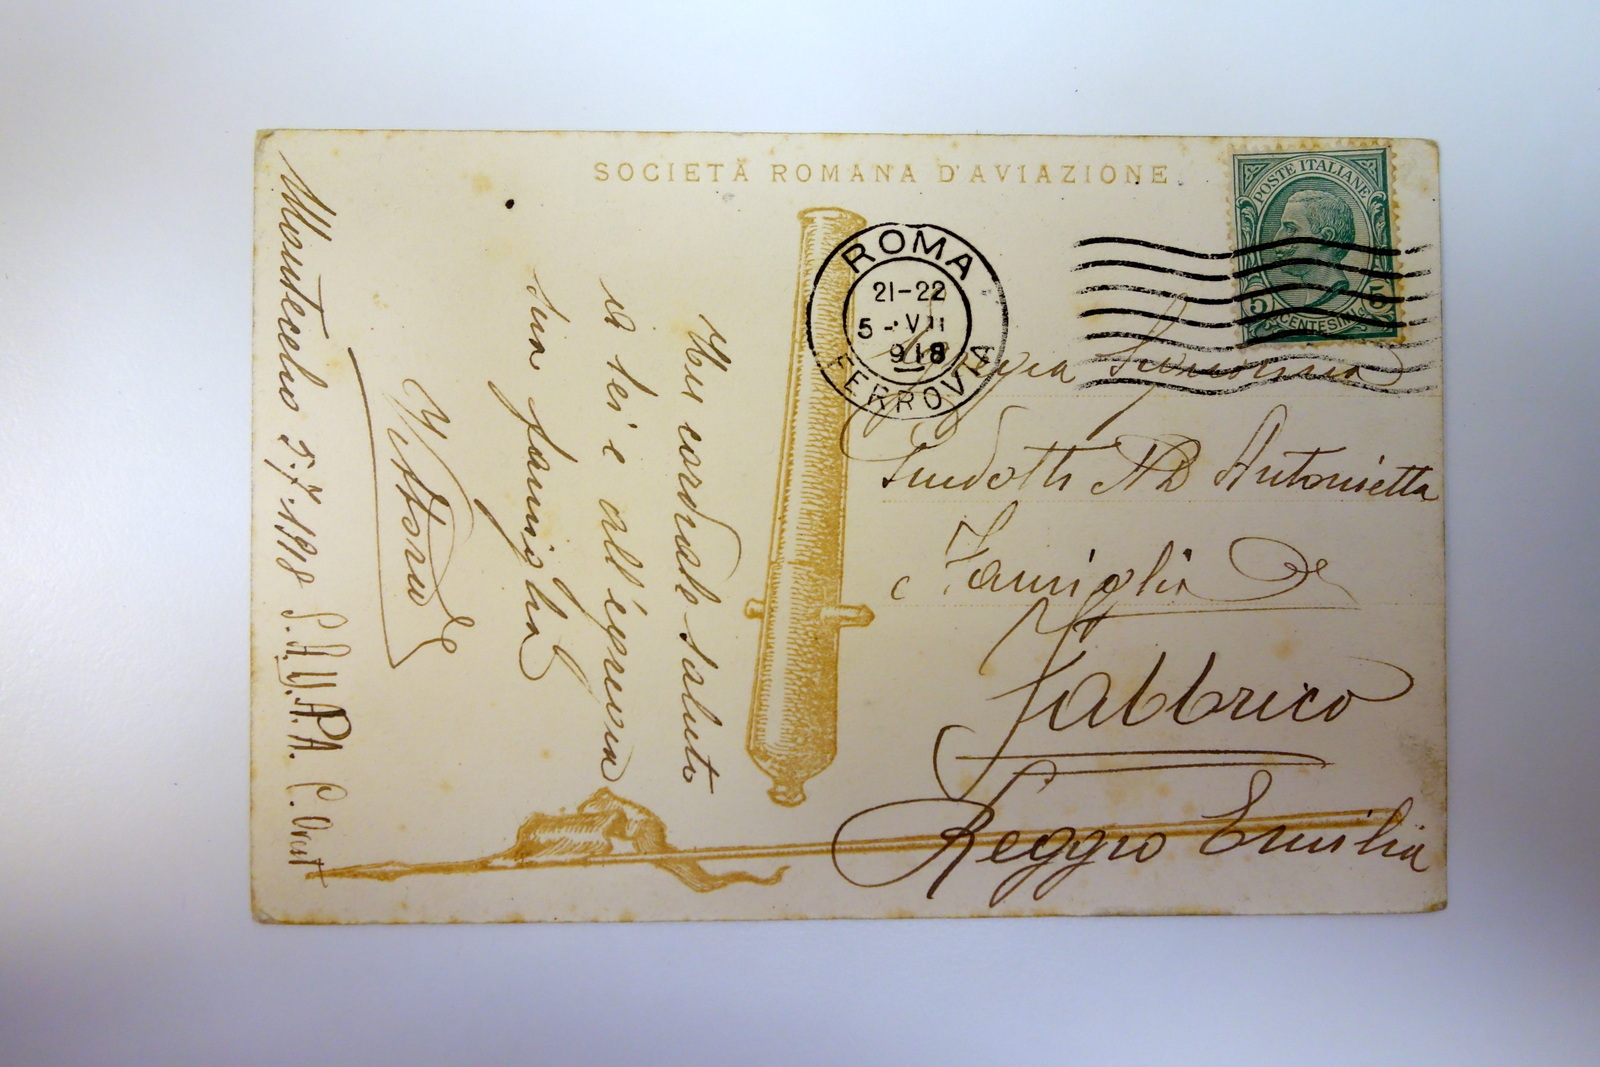 SOCIETÀ ROMANA D'AVIAZIONE
POSTE ITALIANE
5 5
CENTESIMI
ROMA
21-22
5-VII
918
FERROVIA
Montecelio 5.7.1918 S.A.V.A.P.A.
Un cordiale saluto
a lei e all'egregia
sua famiglia
Vittorio
Signorina
Guidotti Antonietta
e Famiglia
Fabbrico
Reggio Emilia